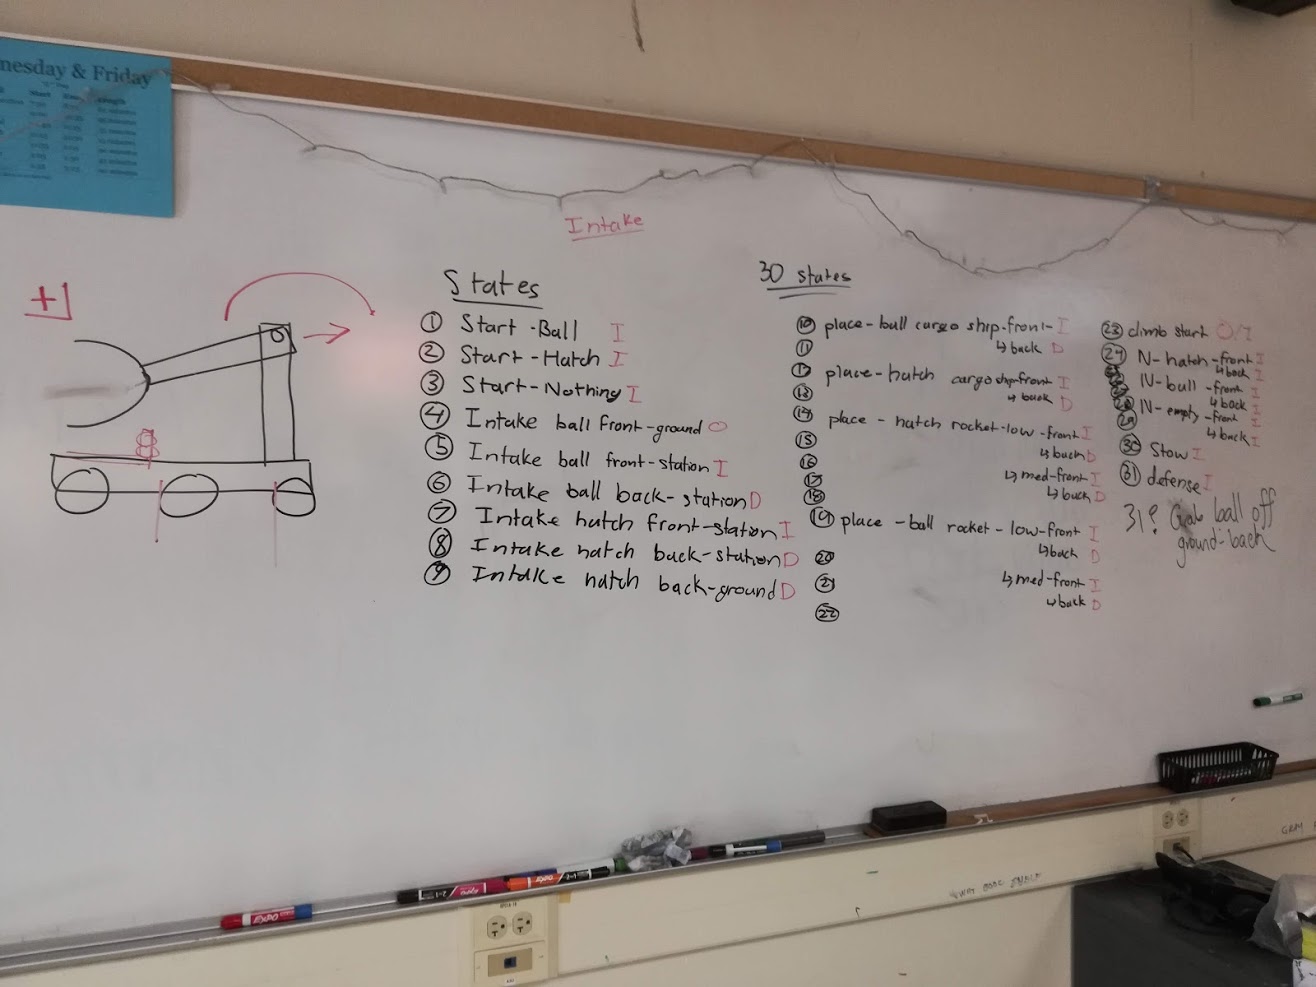 nesday & Friday
Intake
+1
States
① Start-Ball I
② Start-Hatch I
③ Start-Nothing I
④ Intake ball front-ground O
⑤ Intake ball front-station I
⑥ Intake ball back-station D
⑦ Intake hatch front-station I
⑧ Intake hatch back-station D
⑨ Intake hatch back-ground D
30 states
⑩ place-ball cargo ship-front- I
⑪ ↳ back D
⑫ place-hatch cargo ship-front I
⑬ ↳ back D
⑭ place - hatch rocket-low-front I
⑮ ↳ back D
⑯
⑰ ↳ med-front I
⑱ ↳ back D
⑲ place-ball rocket-low-front I
⑳ ↳ back D
㉑ ↳ med-front I
㉒ ↳ back D
㉓ climb start
㉔ N-hatch-front I
↳ back I
N-ball-front I
↳ back I
㉘ N-empty-front I
㉙ ↳ back I
㉚ Stow I
㉛ defense I
31? Grab ball off
ground-back
EXPO